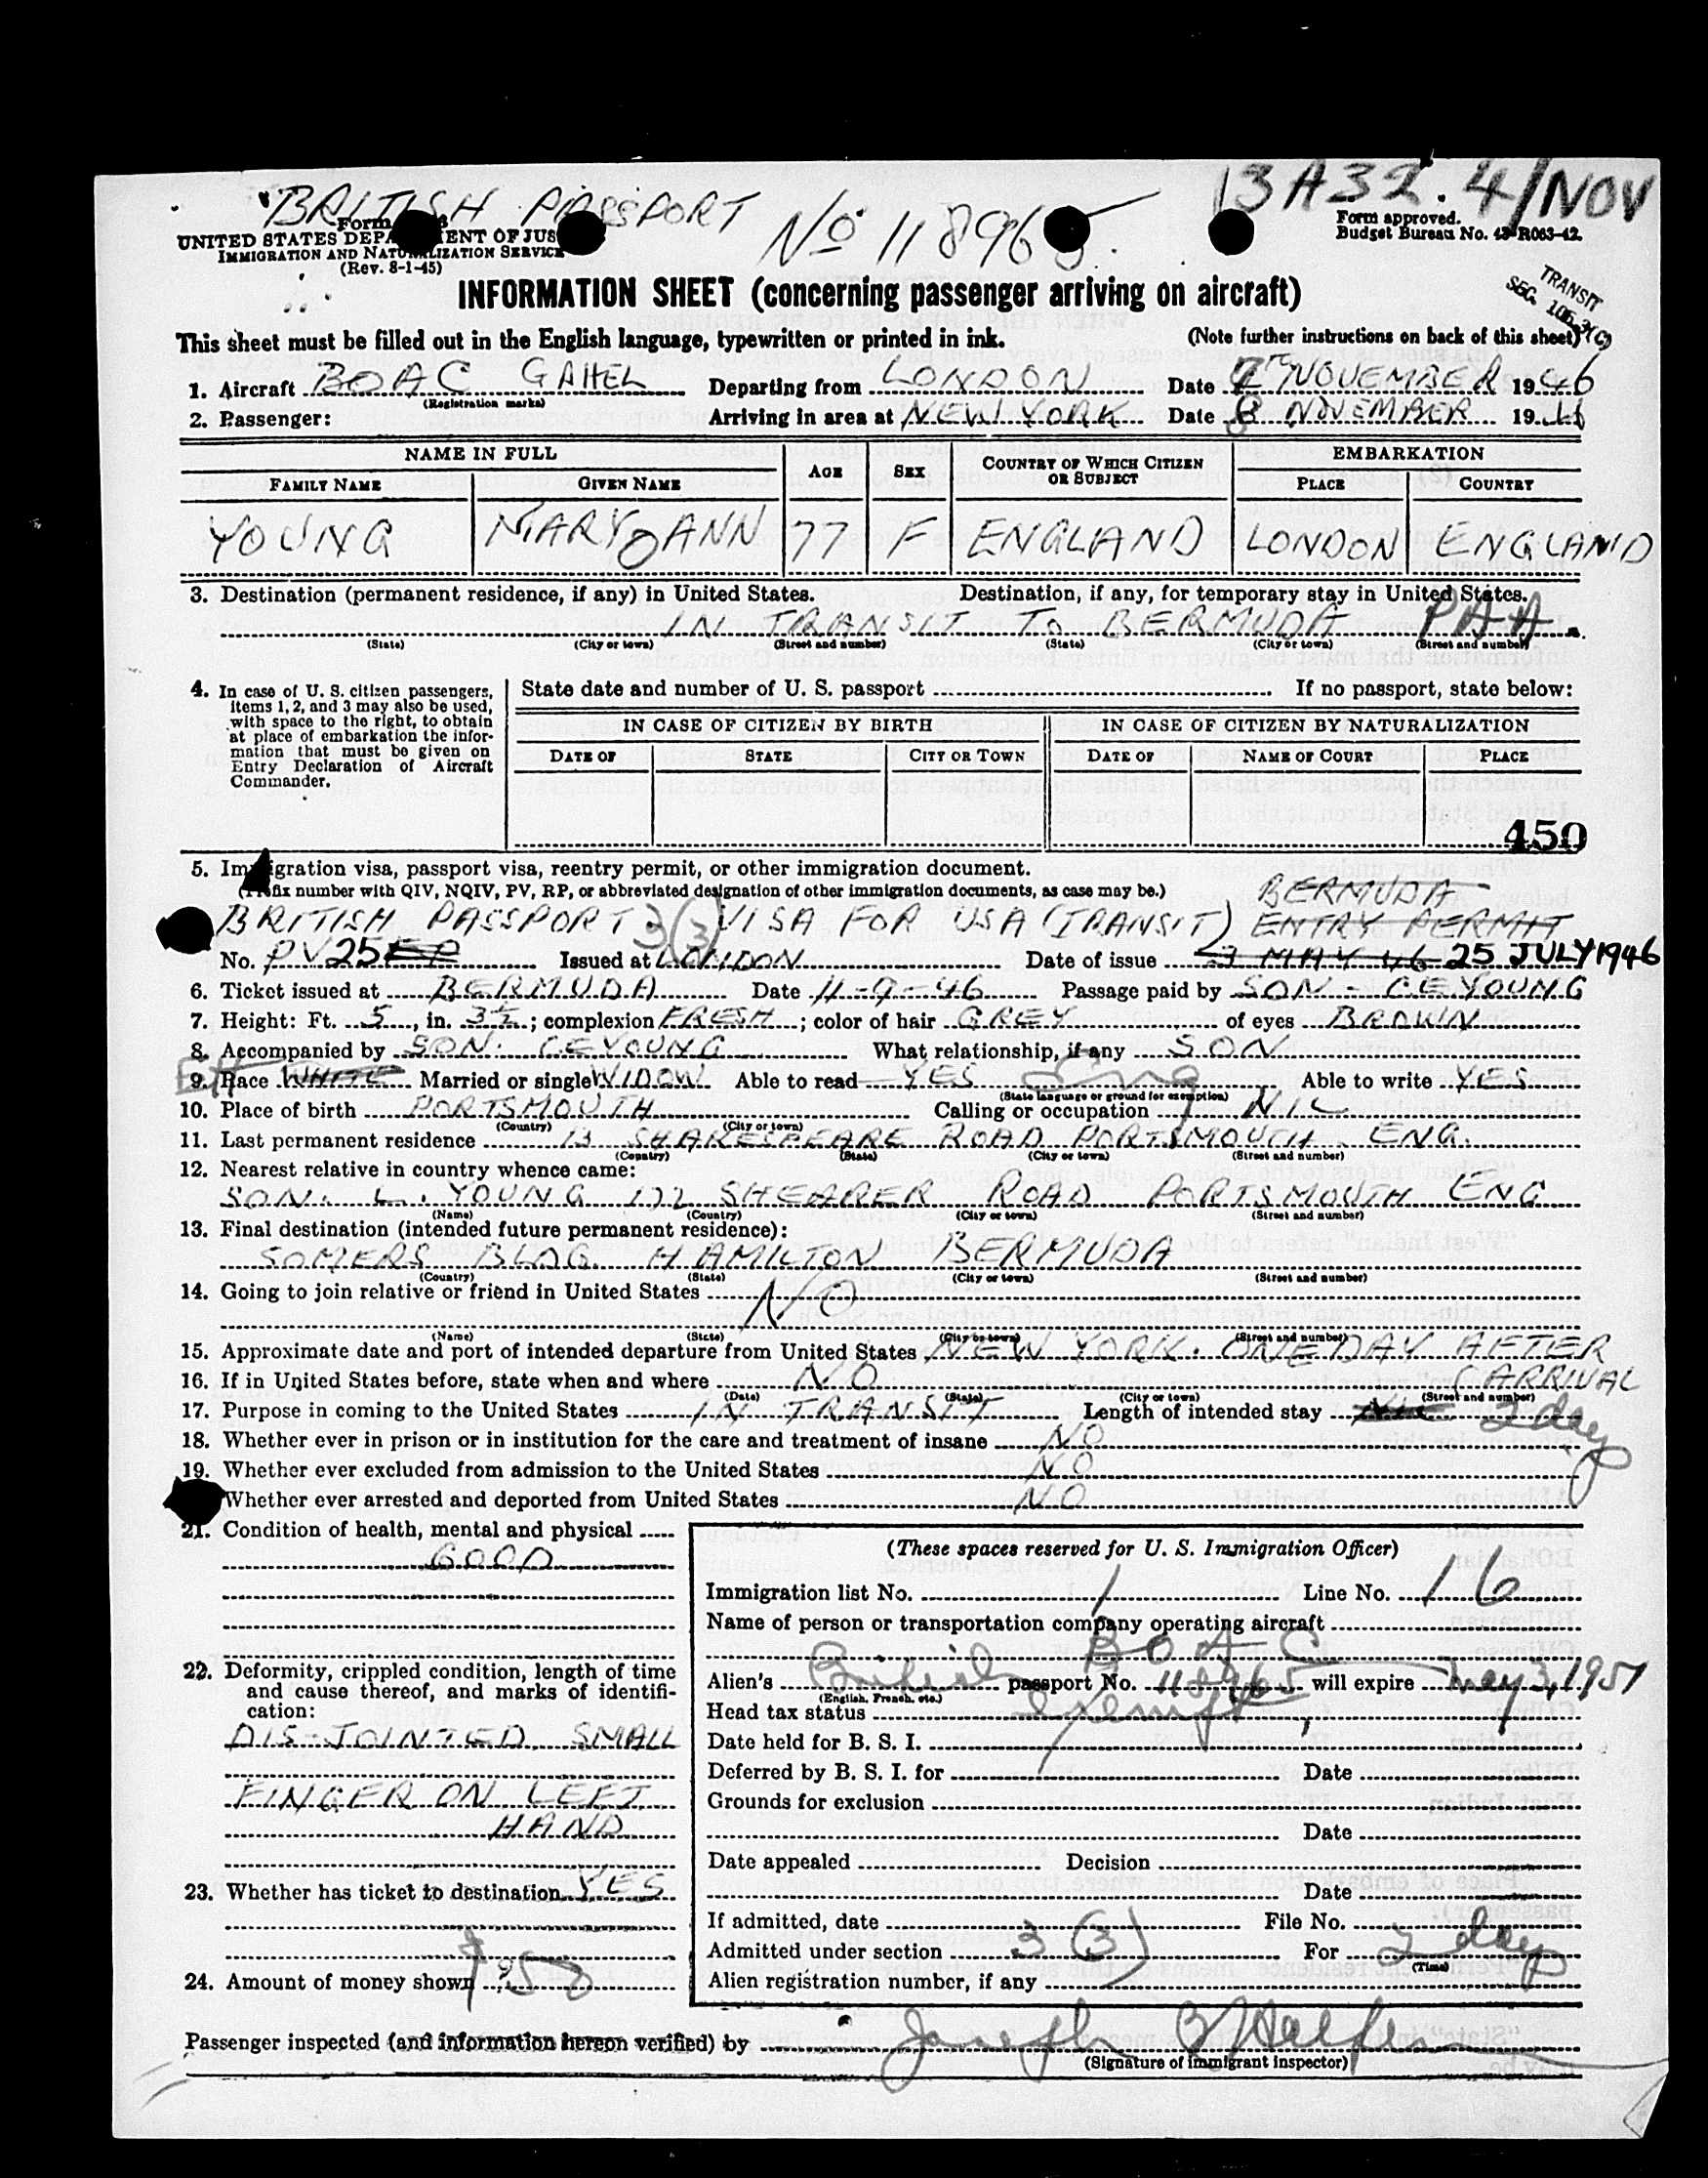 BRITISH PASSPORT No 118965. 13A32. 4/NOV
Form
UNITED STATES DEPARTMENT OF JUS
IMMIGRATION AND NATURALIZATION SERVICE
(Rev. 8-1-45)
Form approved.
Budget Bureau No. 43-R063-42.
TRANSIT
SEC. 106.3(C)
INFORMATION SHEET (concerning passenger arriving on aircraft)
This sheet must be filled out in the English language, typewritten or printed in ink. (Note further instructions on back of this sheet)
1. Aircraft BOAC GAHEL Departing from LONDON Date 7TH NOVEMBER 1946
(Registration marks)
2. Passenger: Arriving in area at NEW YORK Date 8 NOVEMBER 1946
NAME IN FULL AGE SEX COUNTRY OF WHICH CITIZEN OR SUBJECT EMBARKATION
FAMILY NAME GIVEN NAME PLACE COUNTRY
YOUNG MARY ANN 77 F ENGLAND LONDON ENGLAND
3. Destination (permanent residence, if any) in United States. Destination, if any, for temporary stay in United States.
IN TRANSIT TO BERMUDA PAA.
(State) (City or town) (Street and number) (State) (City or town) (Street and number)
4. In case of U. S. citizen passengers, items 1, 2, and 3 may also be used, with space to the right, to obtain at place of embarkation the information that must be given on Entry Declaration of Aircraft Commander.
State date and number of U. S. passport If no passport, state below:
IN CASE OF CITIZEN BY BIRTH IN CASE OF CITIZEN BY NATURALIZATION
DATE OF STATE CITY OR TOWN DATE OF NAME OF COURT PLACE
450
5. Immigration visa, passport visa, reentry permit, or other immigration document.
(Prefix number with QIV, NQIV, PV, RP, or abbreviated designation of other immigration documents, as case may be.)
BRITISH PASSPORT 3(3) VISA FOR USA (TRANSIT) BERMUDA ENTRY PERMIT
No. PV25 Issued at LONDON Date of issue 3 MAY 46 25 JULY 1946
6. Ticket issued at BERMUDA Date 11-9-46 Passage paid by SON - C E YOUNG
7. Height: Ft. 5, in. 3½; complexion FRESH; color of hair GREY of eyes BROWN
8. Accompanied by SON. C E YOUNG What relationship, if any SON
9. Race WHITE Married or single WIDOW Able to read YES Eng Able to write YES
(State language or ground for exemption)
10. Place of birth PORTSMOUTH Calling or occupation NIL
(Country) (City or town)
11. Last permanent residence 13 SHAKESPEARE ROAD PORTSMOUTH ENG.
(Country) (State) (City or town) (Street and number)
12. Nearest relative in country whence came:
SON. L. YOUNG 122 SHEARER ROAD PORTSMOUTH ENG
(Name) (Country) (City or town) (Street and number)
13. Final destination (intended future permanent residence):
SOMERS BLDG. HAMILTON BERMUDA
(Country) (State) (City or town) (Street and number)
14. Going to join relative or friend in United States NO
(Name) (State) (City or town) (Street and number)
15. Approximate date and port of intended departure from United States NEW YORK. ONE DAY AFTER ARRIVAL
16. If in United States before, state when and where NO
(Date) (State) (City or town) (Street and number)
17. Purpose in coming to the United States IN TRANSIT Length of intended stay 2 day
18. Whether ever in prison or in institution for the care and treatment of insane NO
19. Whether ever excluded from admission to the United States NO
Whether ever arrested and deported from United States NO
21. Condition of health, mental and physical
GOOD
22. Deformity, crippled condition, length of time and cause thereof, and marks of identification:
DIS-JOINTED SMALL
FINGER ON LEFT
HAND
23. Whether has ticket to destination YES
24. Amount of money shown $50
(These spaces reserved for U. S. Immigration Officer)
Immigration list No. 1 Line No. 16
Name of person or transportation company operating aircraft
B O A C
Alien's British passport No. 118965 will expire May 3, 1951
(English, French, etc.)
Head tax status exempt
Date held for B. S. I.
Deferred by B. S. I. for Date
Grounds for exclusion
Date
Date appealed Decision
Date
If admitted, date File No.
Admitted under section 3(3) For 2 day
(Time)
Alien registration number, if any
Passenger inspected (and information hereon verified) by Joseph
(Signature of immigrant inspector)